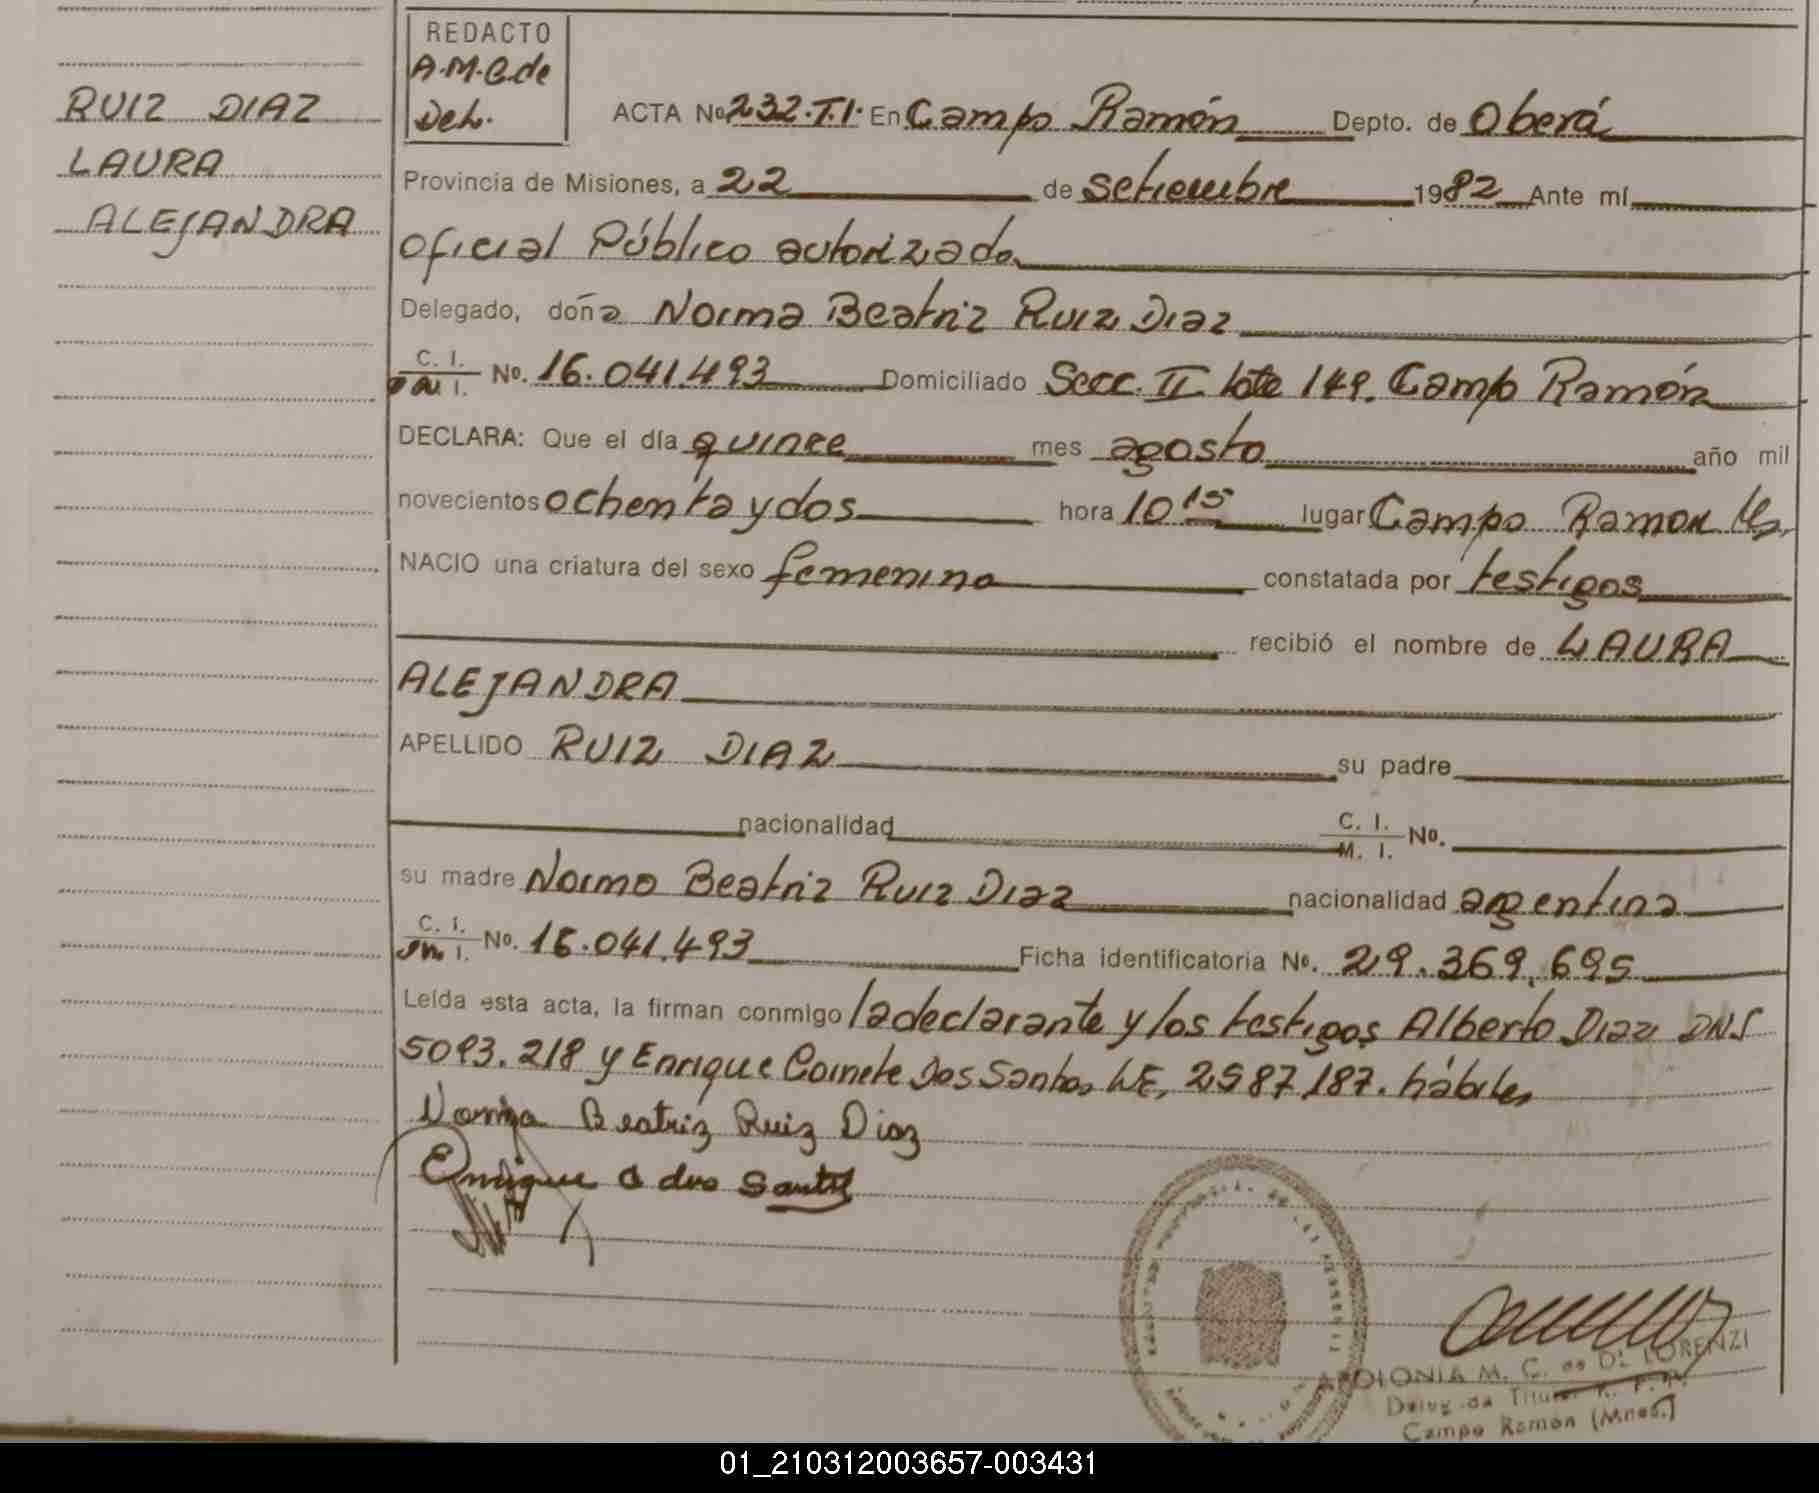 RUIZ DIAZ
LAURA
ALEJANDRA
REDACTO
A.M.C. de
Del.
ACTA No 232.T.I. En Campo Ramón Depto. de Oberá
Provincia de Misiones, a 22 de setiembre 1982 Ante mí
oficial Público autorizado
Delegado, doña Norma Beatriz Ruiz Diaz
C. I. No. 16.041.493 Domiciliado Secc. II lote 149. Campo Ramón
DECLARA: Que el día quince mes agosto año mil
novecientos ochenta y dos hora 10 15 lugar Campo Ramon Ms.
NACIO una criatura del sexo femenino constatada por testigos
recibió el nombre de LAURA
ALEJANDRA
APELLIDO RUIZ DIAZ su padre
nacionalidad C. I. M. I. No.
su madre Norma Beatriz Ruiz Diaz nacionalidad argentina
C. I. No. 16.041.493 Ficha identificatoria No. 29.369.695
Leída esta acta, la firman conmigo la declarante y los testigos Alberto Diaz DNI
5093.218 y Enrique Dos Santos LE, 2587187. hábiles
Norma Beatriz Ruiz Diaz
Enrique C dos Santos
APOLONIA M. C. de DI LORENZI
Delegada Titular R. P. P.
Campo Ramón (Mnes.)
01_210312003657-003431